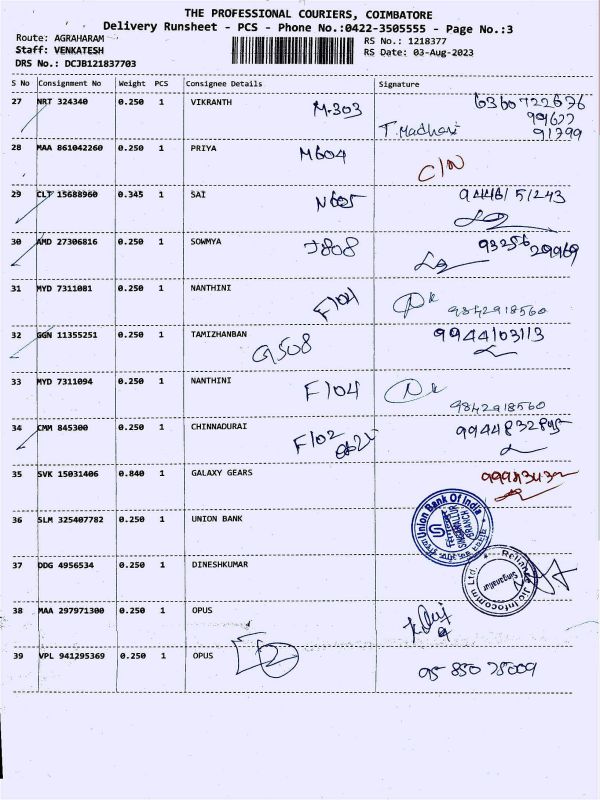 THE PROFESSIONAL COURIERS, COIMBATORE
Delivery Runsheet - PCS - Phone No.:0422-3505555 - Page No.:3
Route: AGRAHARAM
RS No.: 1218377
Staff: VENKATESH
RS Date: 03-Aug-2023
DRS No.: DCJB121837703
S No Consignment No Weight PCS Consignee Details Signature
27 NRT 324340 0.250 1 VIKRANTH M-303
T. Madhari 91799
28 MAA 861042260 0.250 1 PRIYA M604 C/N
29 CLT 15688960 0.345 1 SAI N605 9446151243
30 AMD 27306816 0.250 1 SOWMYA J808 93256 29969
31 MYD 7311081 0.250 1 NANTHINI F104 9842918560
32 GGN 11355251 0.250 1 TAMIZHANBAN G508 9944103113
33 MYD 7311094 0.250 1 NANTHINI F104 9842918560
34 CMM 845300 0.250 1 CHINNADURAI F102
35 SVK 15031406 0.840 1 GALAXY GEARS
36 SLM 325407782 0.250 1 UNION BANK
Union Bank Of India
BRANCH
37 DDG 4956534 0.250 1 DINESHKUMAR
Reliance Jio Infocomm Ltd.
Singanallur
38 MAA 297971300 0.250 1 OPUS
39 VPL 941295369 0.250 1 OPUS 95 850 75009